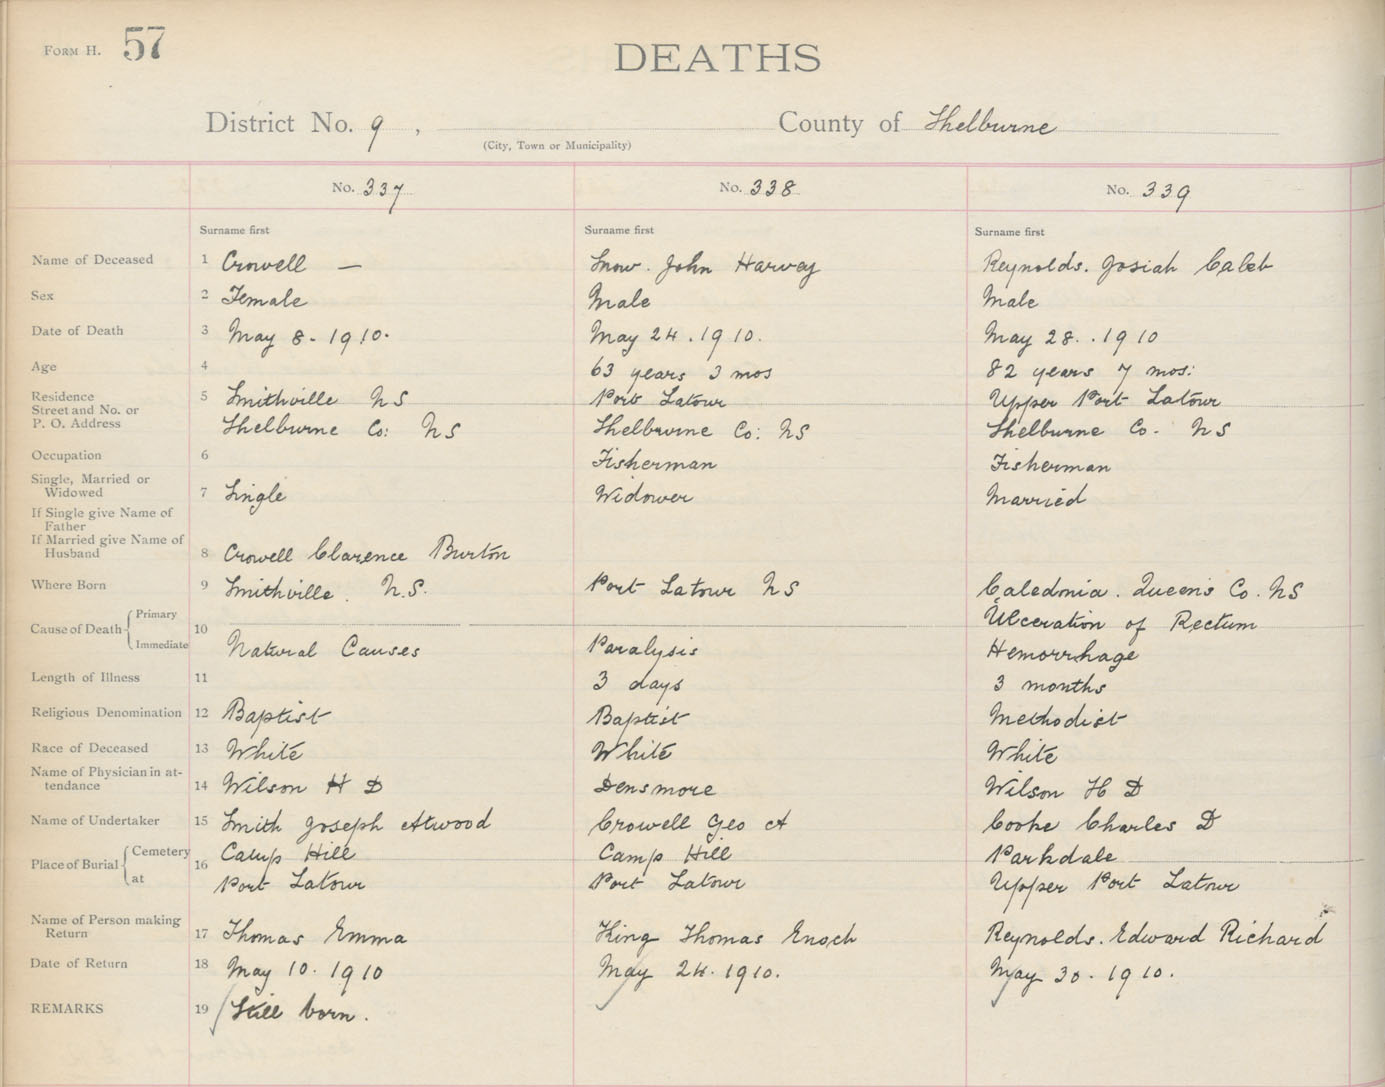 FORM H. 57
DEATHS
District No. 9 , County of Shelburne
(City, Town or Municipality)
No. 337 No. 338 No. 339
Surname first Surname first Surname first
Name of Deceased 1 Crowell — Snow. John Harvey Reynolds. Josiah Caleb
Sex 2 Female Male Male
Date of Death 3 May 8 - 1910. May 24 . 1910. May 28. . 1910
Age 4 63 years 3 mos 82 years 7 mos:
Residence 5 Smithville NS Port Latour Upper Port Latour
Street and No. or
P. O. Address Shelburne Co: NS Shelburne Co: NS Shelburne Co. NS
Occupation 6 Fisherman Fisherman
Single, Married or
Widowed 7 Single Widower Married
If Single give Name of
Father
If Married give Name of
Husband 8 Crowell Clarence Burton
Where Born 9 Smithville. N.S. Port Latour NS Caledonia. Queens Co. NS
Cause of Death Primary 10 Ulceration of Rectum
Immediate Natural Causes Paralysis Hemorrhage
Length of Illness 11 3 days 3 months
Religious Denomination 12 Baptist Baptist Methodist
Race of Deceased 13 White White White
Name of Physician in at-
tendance 14 Wilson H D Densmore Wilson H D
Name of Undertaker 15 Smith Joseph Atwood Crowell Geo A Cooke Charles D
Place of Burial Cemetery 16 Camp Hill Camp Hill Parkdale
at Port Latour Port Latour Upper Port Latour
Name of Person making
Return 17 Thomas Emma King Thomas Enoch Reynolds. Edward Richard
Date of Return 18 May 10. 1910 May 24. 1910. May 30. 1910.
REMARKS 19 Still born.